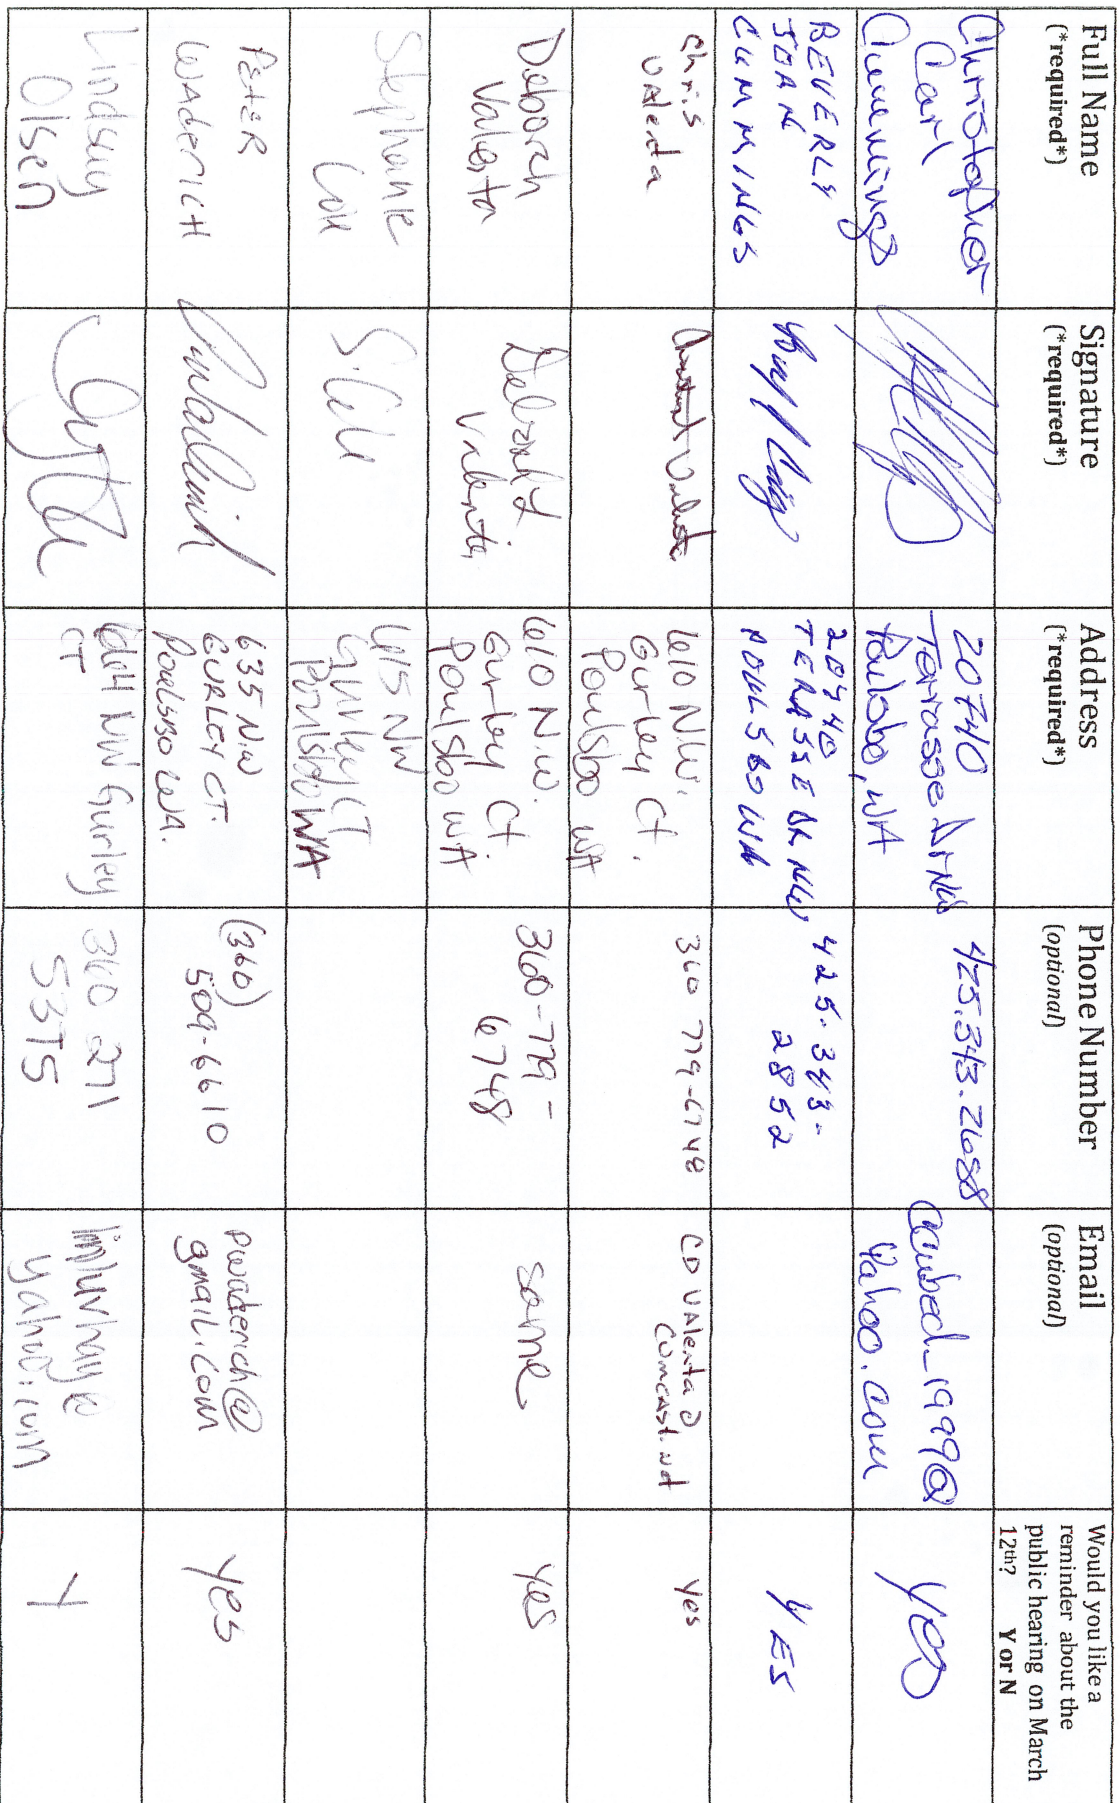 Full Name
(*required*)
Signature
(*required*)
Address
(*required*)
Phone Number
(optional)
Email
(optional)
Would you like a
reminder about the
public hearing on March
12th? Y or N
Christopher
Carl
Cummings
20740
Terrasse Dr NW
Poulsbo, WA
425.343.2688
@
Yahoo.com
yes
BEVERLY
JOAN
CUMMINGS
20740
TERASSE DR NW
POULSBO WA
425-343-
2852
YES
Chris
Valenta
610 NW.
Gurley Ct.
Poulsbo WA
360 779-6748
CDValenta@
comcast.net
yes
Deborah
Valenta
Deborah
Valenta
610 N.W.
Gurley Ct.
Poulsbo WA
360-779-
6748
same
yes
Stephanie
615 NW
Gurley CT
Poulsbo WA
Peter
Waderich
635 N.W
GURLEY CT.
Poulsbo WA.
(360)
509-6610
pwaderich@
gmail.com
yes
Lindsay
Olsen
NW Gurley
CT
360 271
5375
yahoo.com
Y